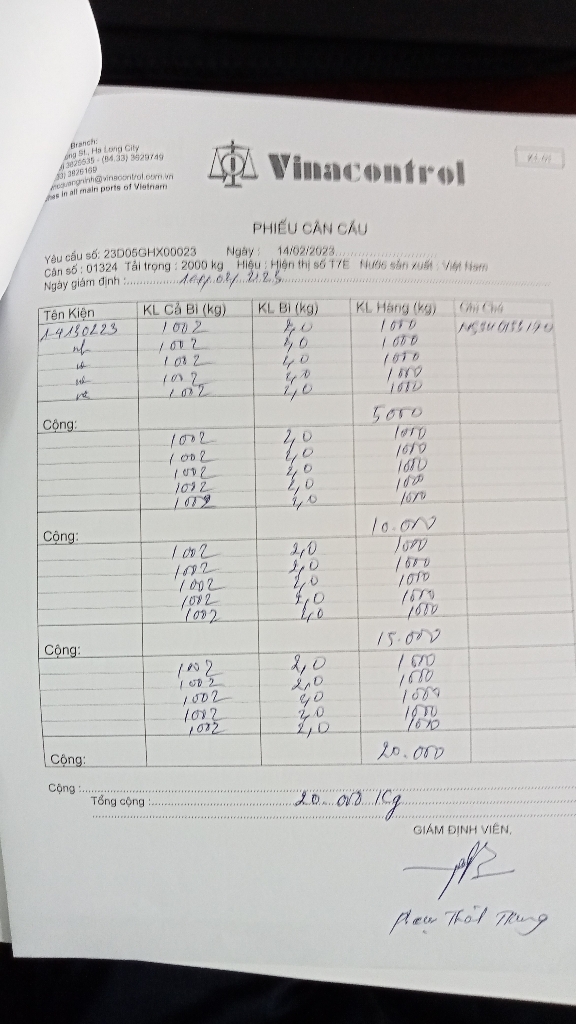 Branch:
ong St., Ha Long City
3825535 - (84.33) 3629749
33) 3826169
quangninh@vinacontrol.com.vn
in all main ports of Vietnam
Vinacontrol
PHIẾU CÂN CẨU
Yêu cầu số: 23D05GHX00023 Ngày : 14/02/2023
Cân số : 01324 Tải trọng : 2000 kg Hiệu : Hiện thị số T7E Nước sản xuất : Việt Nam
Ngày giám định :
Tên Kiện KL Cả Bì (kg) KL Bì (kg) KL Hàng (kg) Ghi Chú
1002 2,0 1000
1002 2,0 1000
1002 2,0 1000
1002 2,0 1000
1002 2,0 1000
Cộng: 5000
1002 2,0 1000
1002 2,0 1000
1002 2,0 1000
1002 2,0 1000
1002 2,0 1000
Cộng: 10.000
1002 2,0 1000
1002 2,0 1000
1002 2,0 1000
1002 2,0 1000
1002 2,0 1000
Cộng: 15.000
1002 2,0 1000
1002 2,0 1000
1002 2,0 1000
1002 2,0 1000
1002 2,0 1000
Cộng: 20.000
Cộng :
Tổng cộng : 20.000 Kg
GIÁM ĐỊNH VIÊN,